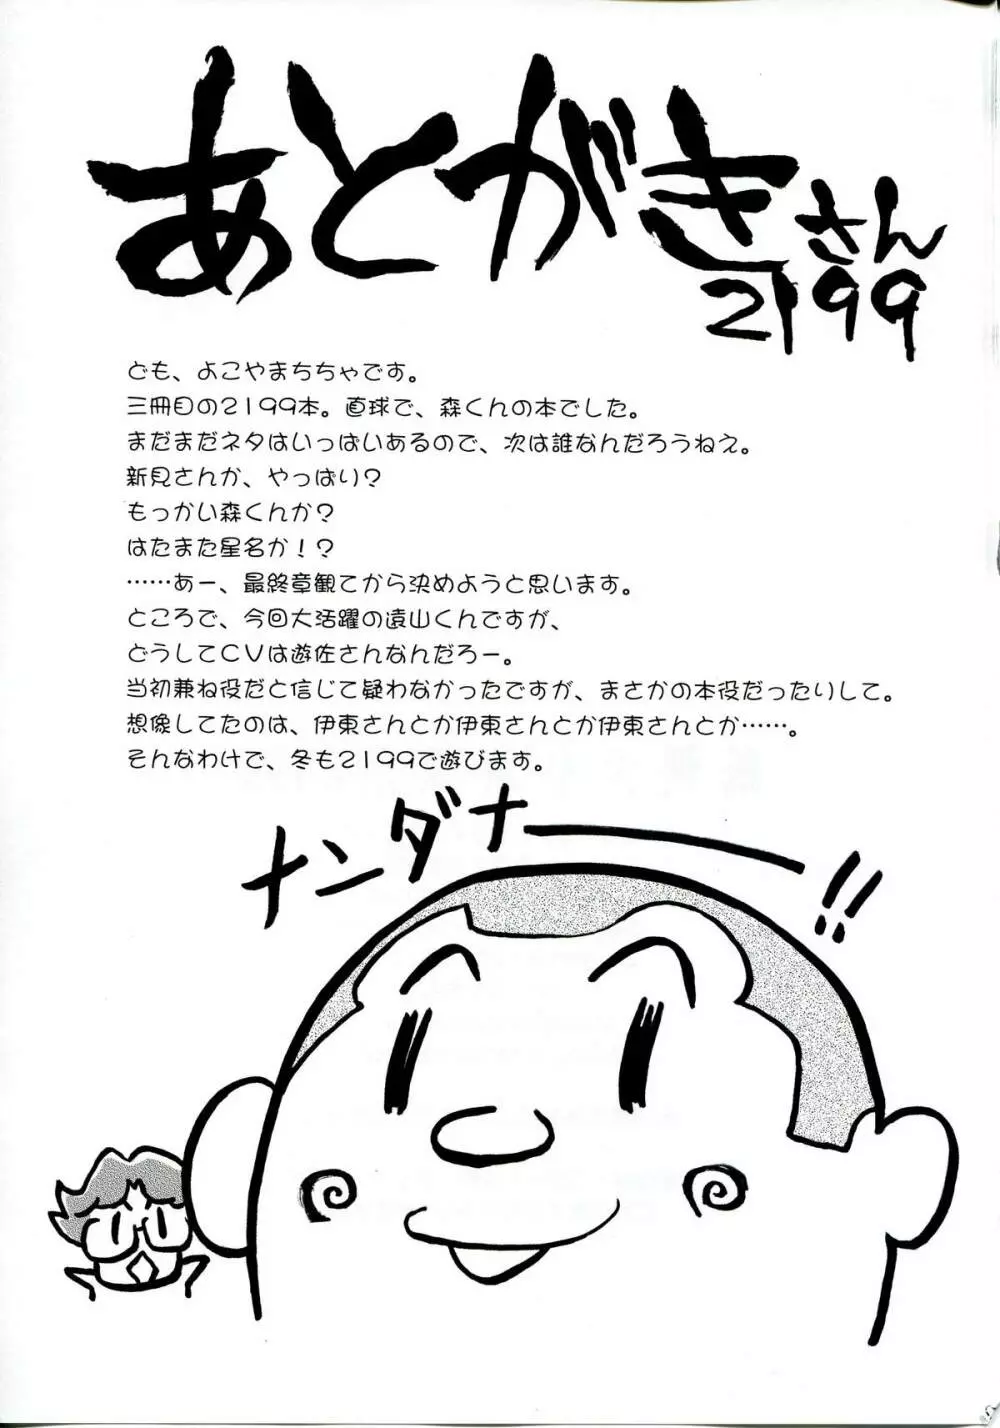 あとがきさん
2199
ども、よこやまちちゃです。
三冊目の2199本。直球で、森くんの本でした。
まだまだネタはいっぱいあるので、次は誰なんだろうねえ。
新見さんか、やっぱり？
もっかい森くんか？
はたまた星名か！？
……あー、最終章観てから決めようと思います。
ところで、今回大活躍の遠山くんですが、
どうしてCVは遊佐さんなんだろー。
当初兼ね役だと信じて疑わなかったですが、まさかの本役だったりして。
想像してたのは、伊東さんとか伊東さんとか伊東さんとか……。
そんなわけで、冬も2199で遊びます。
ナンダナー!!